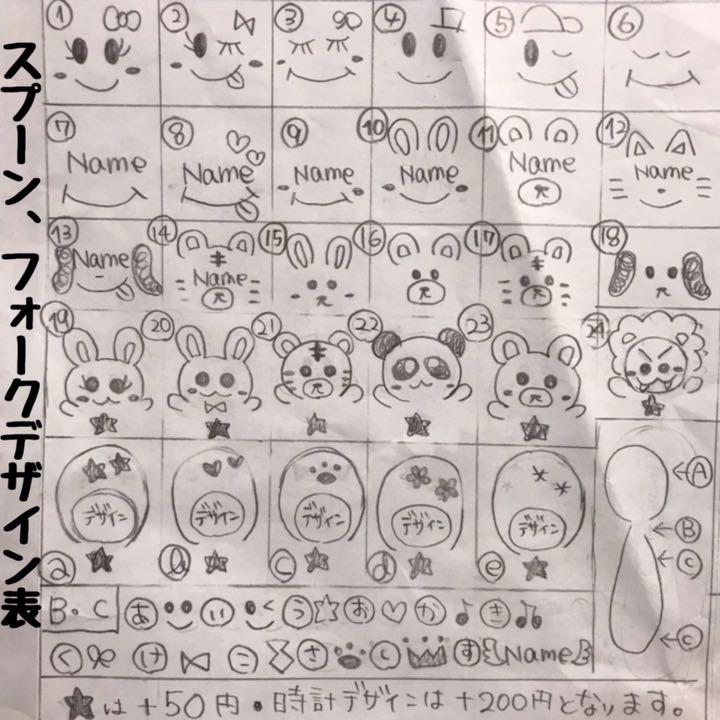 スプーン、フォークデザイン表
① ② ③ ④ ⑤ ⑥
⑦ ⑧ ⑨ ⑩ ⑪ ⑫
Name Name Name Name Name Name
⑬ ⑭ ⑮ ⑯ ⑰ ⑱
Name Name
⑲ ⑳ ㉑ ㉒ ㉓ ㉔
★ ★ ★ ★ ★ ★
デザイン デザイン デザイン デザイン デザイン
ⓐ ★ ⓑ ★ ⓒ ★ ⓓ ★ ⓔ ★
←Ⓐ
←Ⓑ
←ⓒ
←ⓒ
B・C あ い う お か き
く け こ さ し す Name
★は+50円・時計デザインは+200円となります。